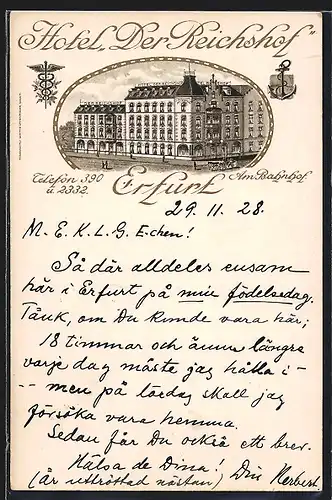 Hotel „Der Reichshof"
Telefon 390
u. 2332.
Am Bahnhof
Erfurt
29.11.28.
M. E. K. L. G. E-chen!
Så där alldeles ensam
här i Erfurt på min födelsedag.
Tänk, om Du kunde vara här;
18 timmar och ännu längre
varje dag måste jag hålla i -
-- men på lördag skall jag
försöka vara hemma.
Sedan får Du också ett brev.
Hälsa de Dina!
(är uttröttad nästan) Din Herbert